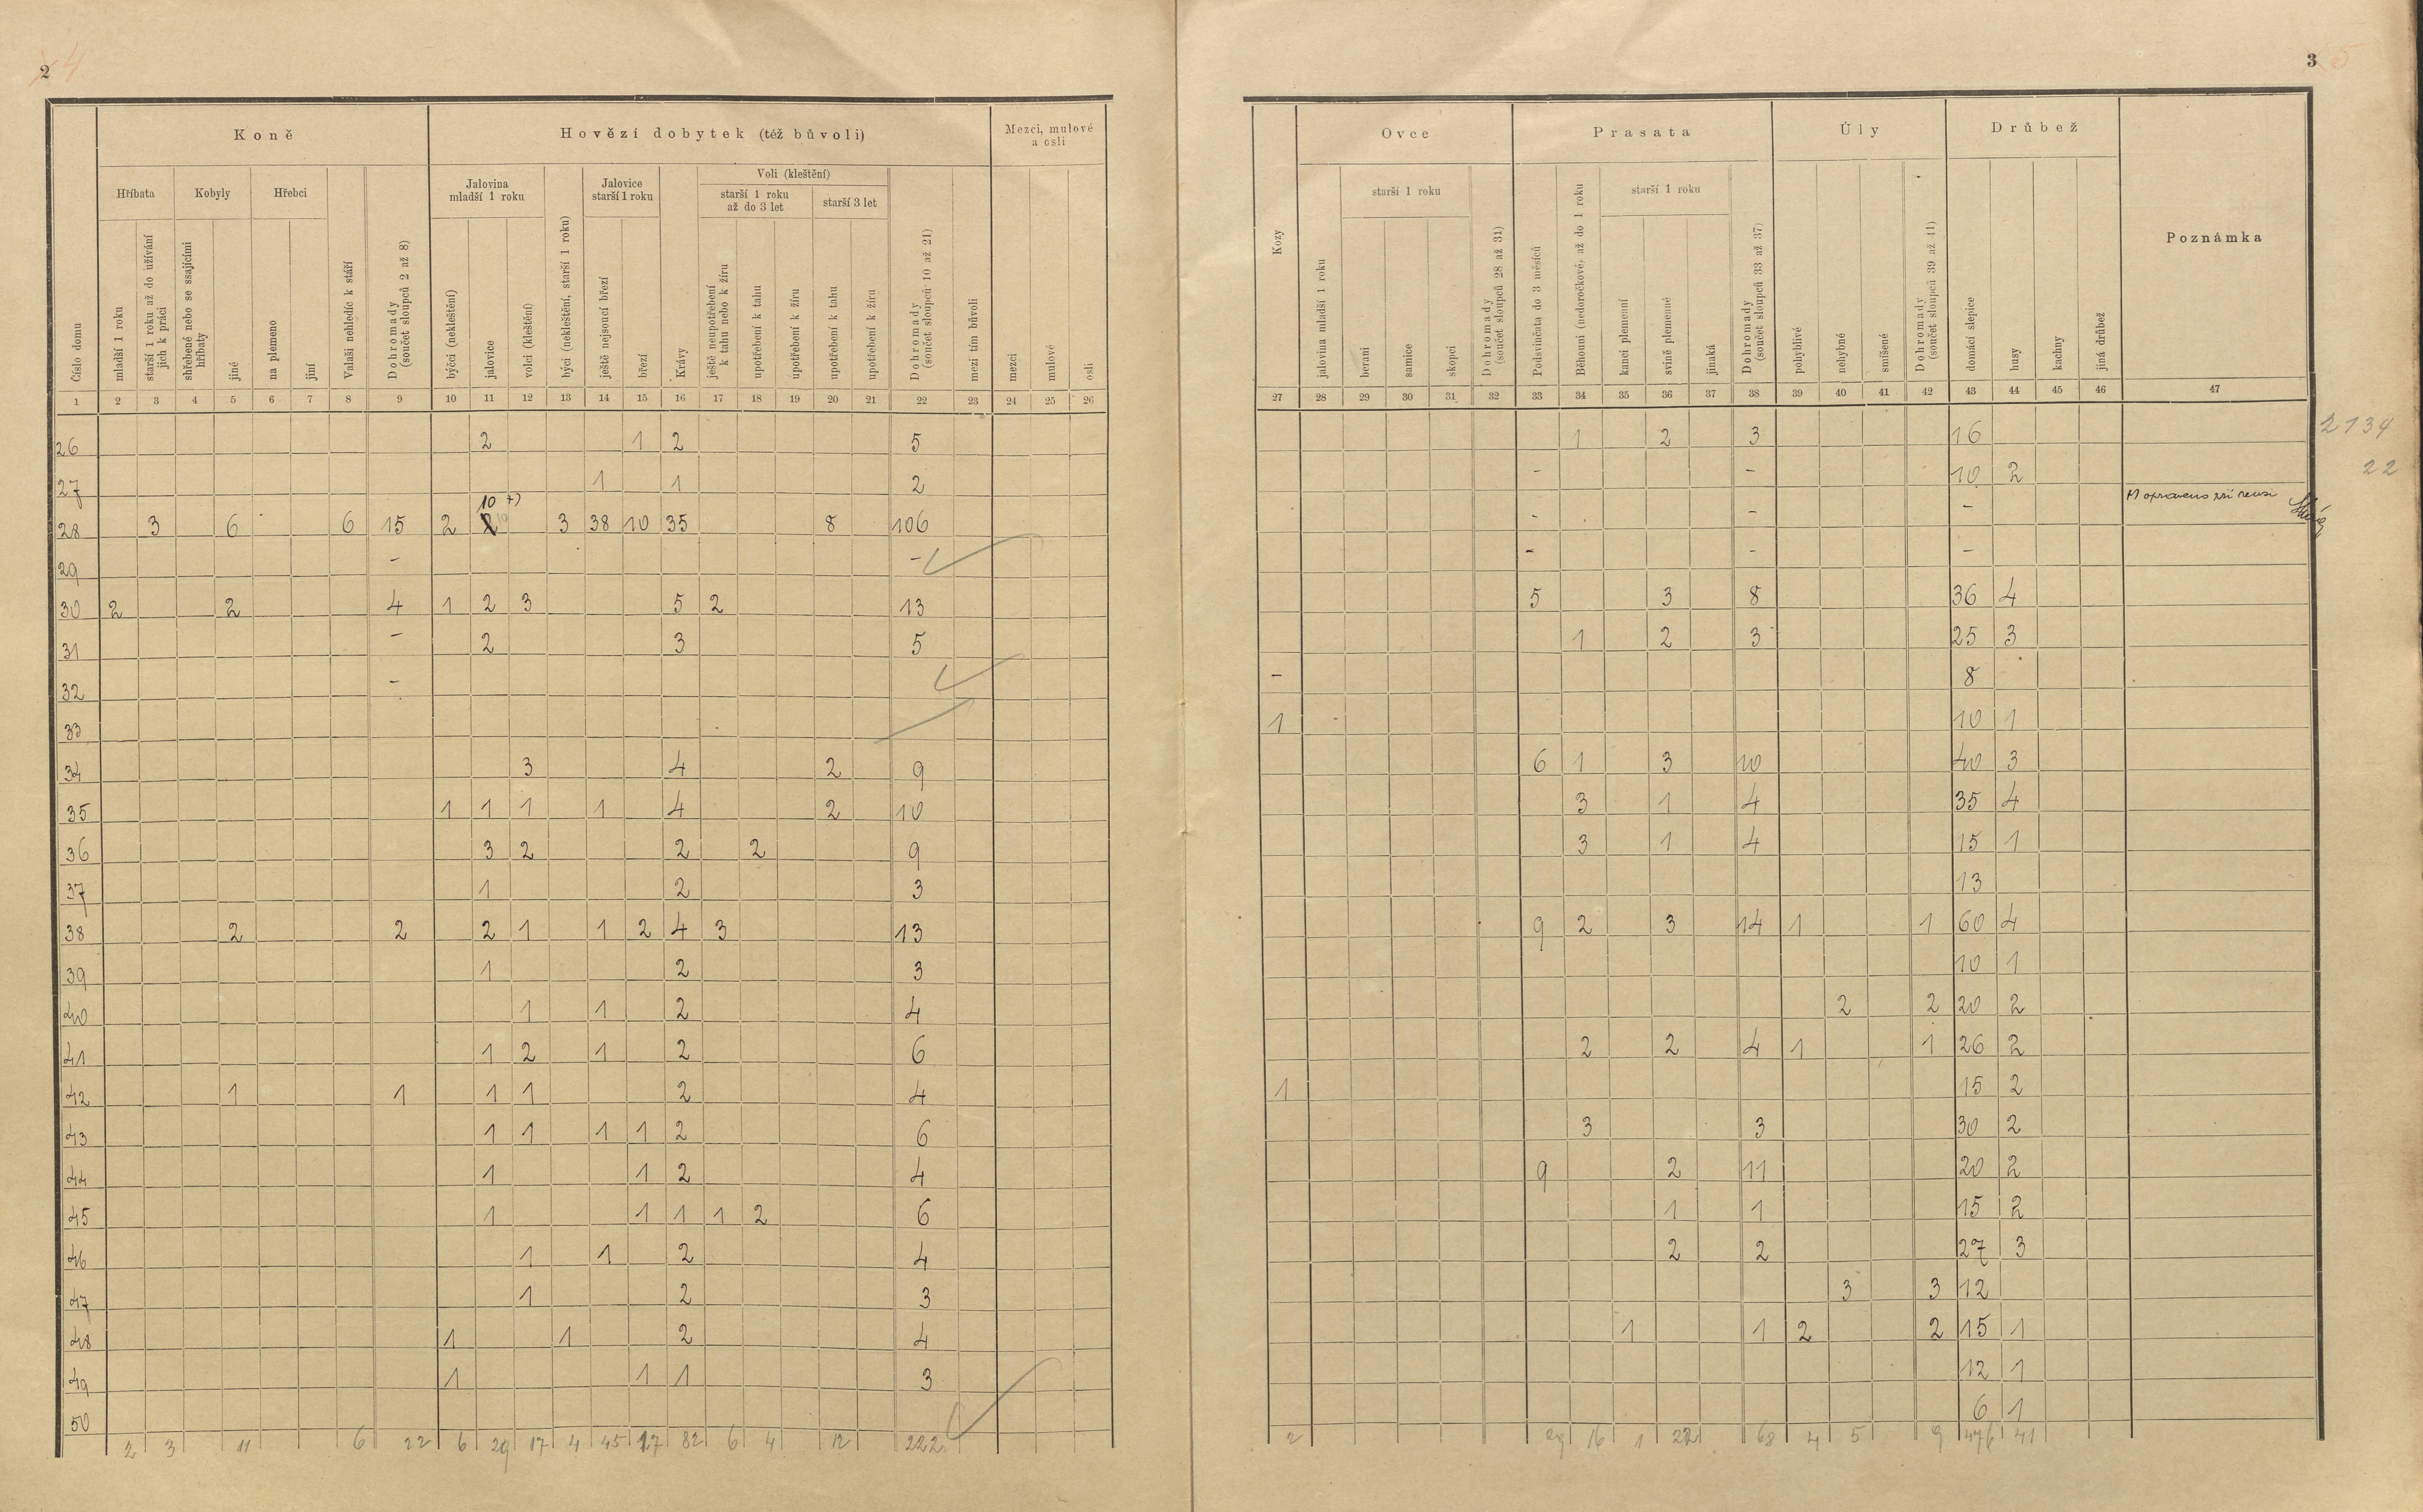 2 4
Koně | Hovězí dobytek (též bůvoli) | Mezci, mulové a osli
Hříbata | Kobyly | Hřebci | Jalovina mladší 1 roku | Jalovice starší 1 roku | Voli (kleštění)
starší 1 roku až do 3 let | starší 3 let
Číslo domu | mladší 1 roku | starší 1 roku až do užívání jich k práci | shřebené nebo se ssajícími hříbaty | jiné | na plemeno | jiní | Valaši nehledíc k stáří | Dohromady (součet sloupců 2 až 8) | býčci (nekleštění) | jalovice | volci (kleštění) | býci (nekleštění, starší 1 roku) | ještě nejsoucí březí | březí | Krávy | ještě neupotřebení k tahu nebo k žíru | upotřebení k tahu | upotřebení k žíru | upotřebení k tahu | upotřebení k žíru | Dohromady (součet sloupců 10 až 21) | mezi tím bůvoli | mezci | mulové | osli
1 2 3 4 5 6 7 8 9 10 11 12 13 14 15 16 17 18 19 20 21 22 23 24 25 26
26 2 1 2 5
27 1 1 2
10 +)
28 3 6 6 15 2 2 10 3 38 10 35 8 106
29 - -
30 2 2 4 1 2 3 5 2 13
31 - 2 3 5
32 -
33
34 3 4 2 9
35 1 1 1 1 4 2 10
36 3 2 2 2 9
37 1 2 3
38 2 2 2 1 1 2 4 3 13
39 1 2 3
40 1 1 2 4
41 1 2 1 2 6
42 1 1 1 1 2 4
43 1 1 1 1 2 6
44 1 1 2 4
45 1 1 1 1 2 6
46 1 1 2 4
47 1 2 3
48 1 1 2 4
49 1 1 1 3
50
2 3 11 6 22 6 29 17 4 45 17 82 6 4 12 222
3 5
Ovce | Prasata | Úly | Drůbež
starší 1 roku | starší 1 roku
Kozy | jalovina mladší 1 roku | berani | samice | skopci | Dohromady (součet sloupců 28 až 31) | Podsvinčata do 3 měsíců | Běhouni (nedoročkové) až do 1 roku | kanci plemenní | svině plemenné | jinaká | Dohromady (součet sloupců 33 až 37) | pohyblivé | nehybné | smíšené | Dohromady (součet sloupců 39 až 41) | domácí slepice | husy | kachny | jiná drůbež | Poznámka
27 28 29 30 31 32 33 34 35 36 37 38 39 40 41 42 43 44 45 46 47
1 2 3 16 2134
- - 10 2 22
- - - +) opraveno při revisi
- - -
5 3 8 36 4
1 2 3 25 3
- 8
1 10 1
6 1 3 10 40 3
3 1 4 35 4
3 1 4 15 1
13
9 2 3 14 1 1 60 4
10 1
2 2 20 2
2 2 4 1 1 26 2
1 15 2
3 3 30 2
9 2 11 20 2
1 1 15 2
2 2 27 3
3 3 12
1 1 2 2 15 1
12 1
6 1
2 29 16 1 22 68 4 5 9 476 41